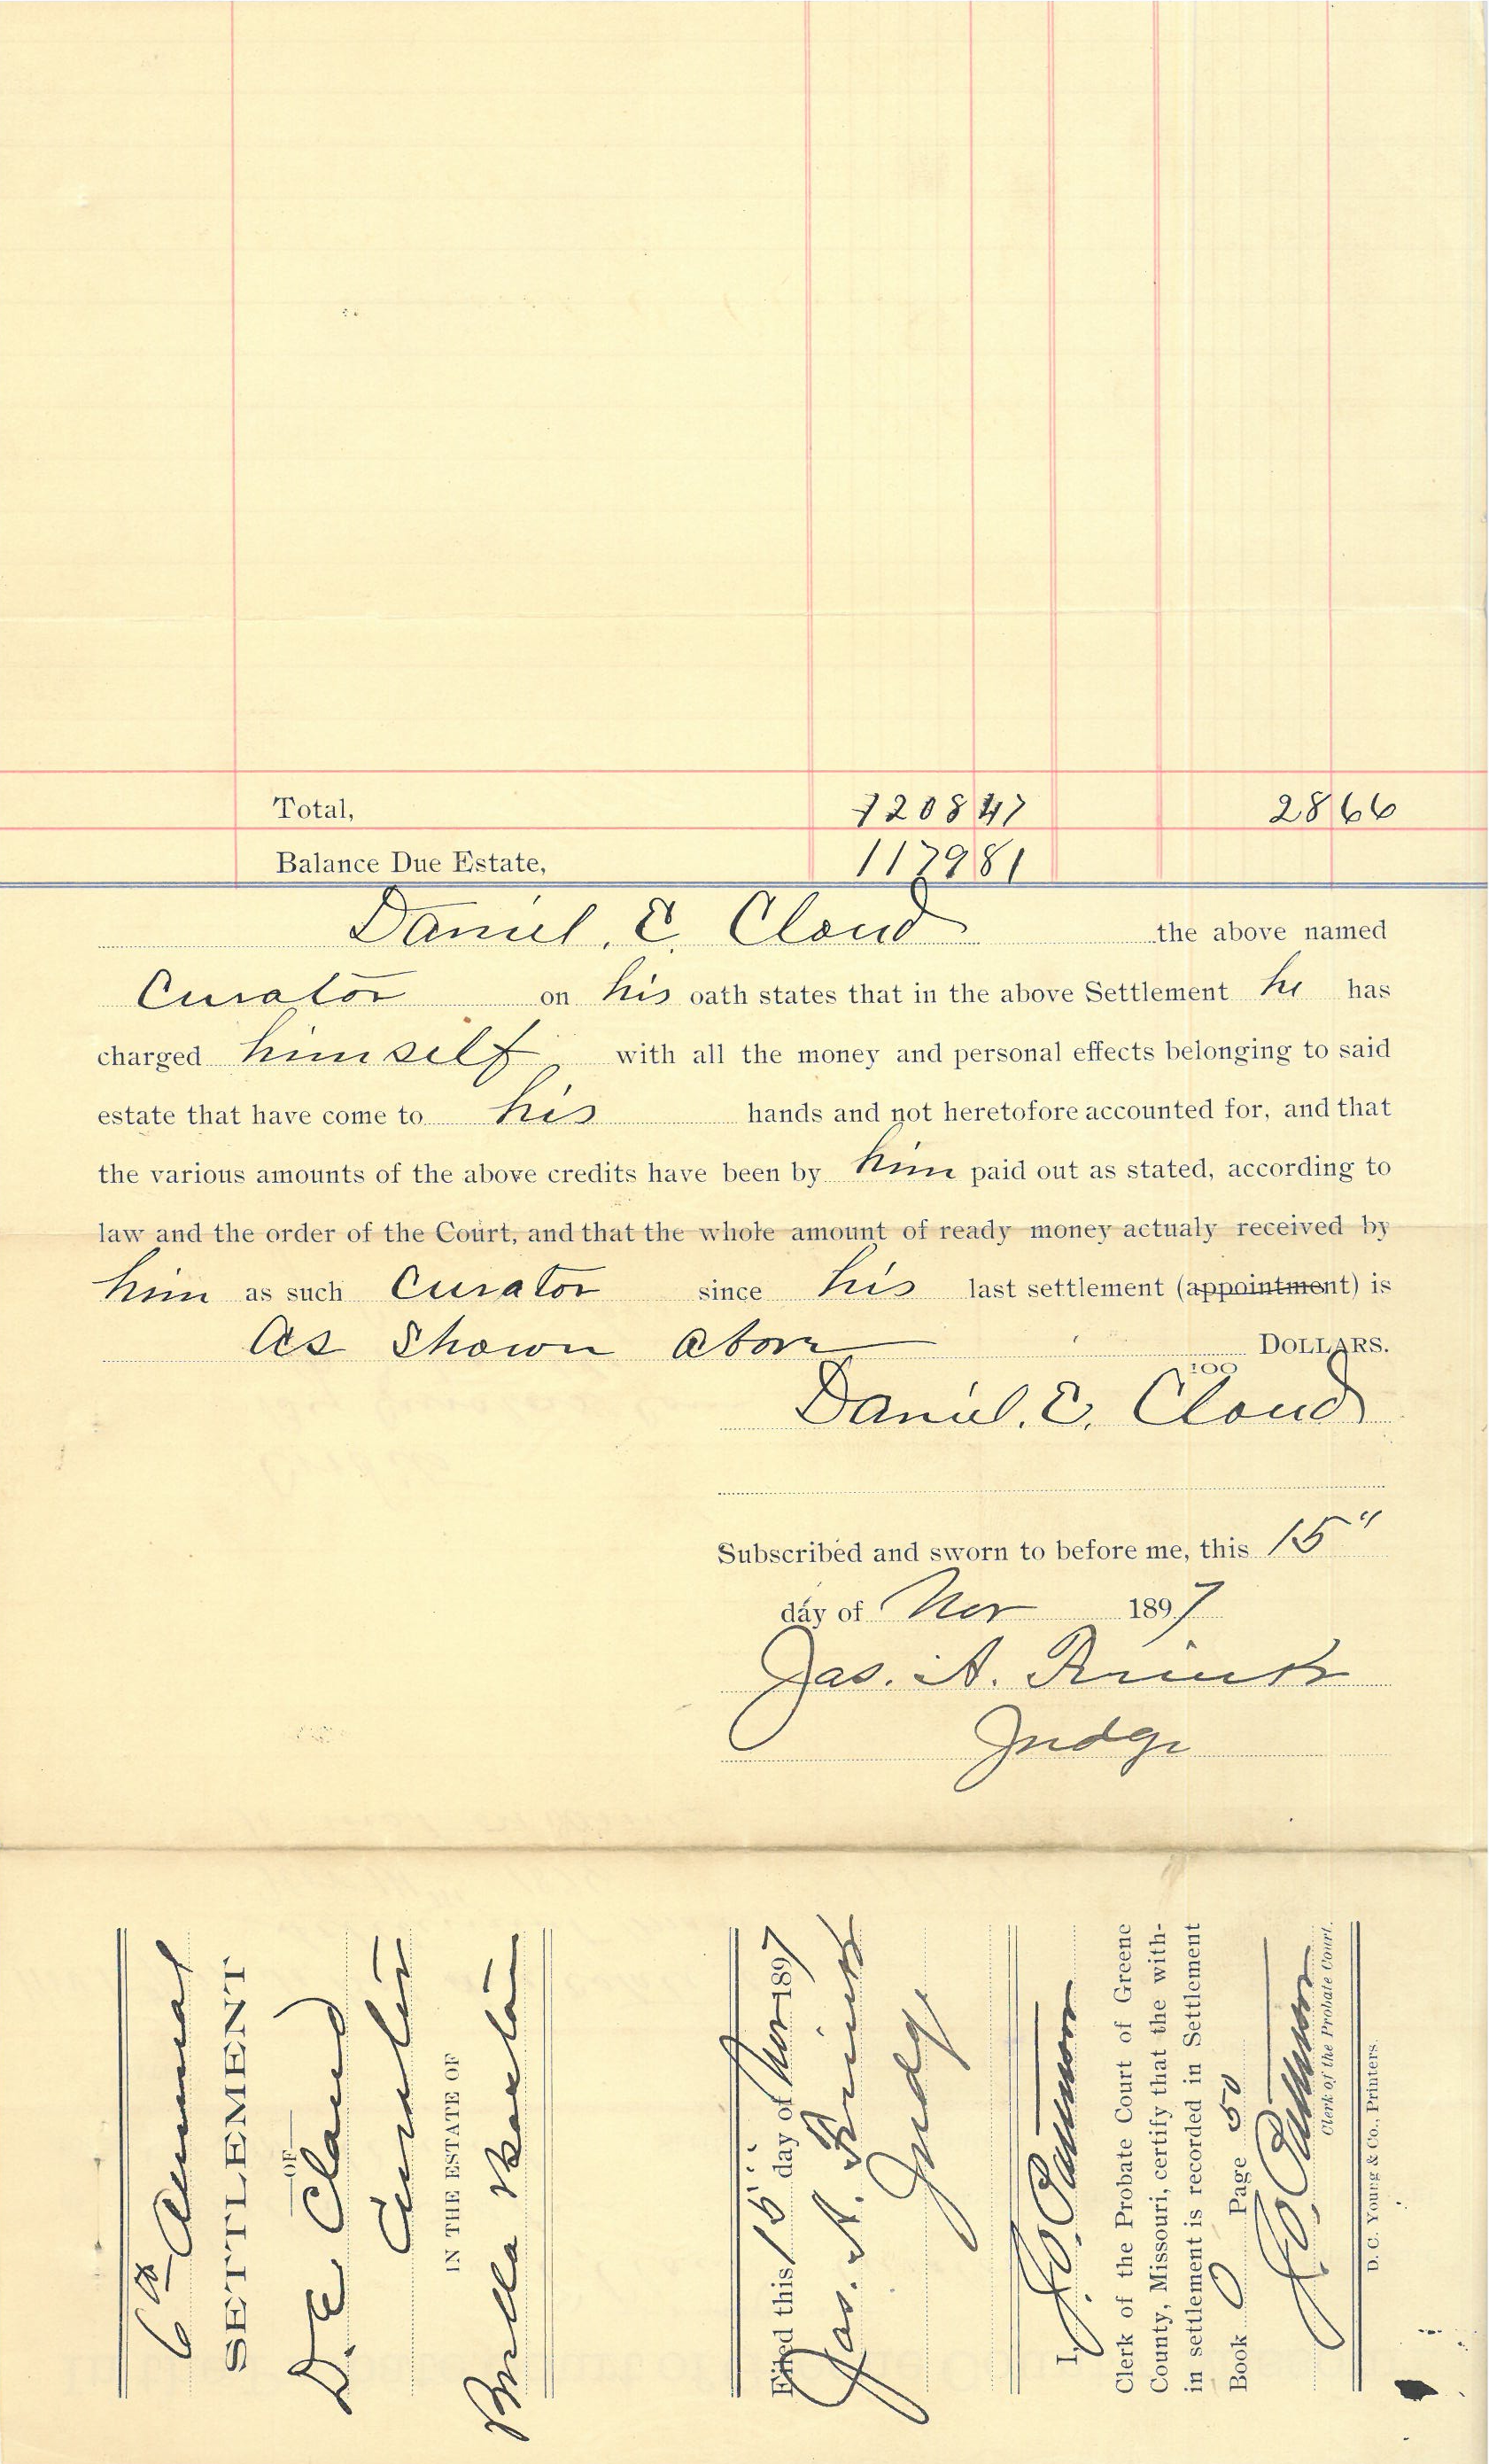 Total, 1208 47 28 66
Balance Due Estate, 1179 81
Daniel. E. Cloud the above named
Curator on his oath states that in the above Settlement he has
charged himself with all the money and personal effects belonging to said
estate that have come to his hands and not heretofore accounted for, and that
the various amounts of the above credits have been by him paid out as stated, according to
law and the order of the Court, and that the whole amount of ready money actualy received by
him as such Curator since his last settlement (appointment) is
As Shown above DOLLARS.
100
Daniel. E. Cloud
Subscribed and sworn to before me, this 15"
day of Nov 1897
Jas. A.
Judge
6th Annual
SETTLEMENT
OF
D. E. Cloud
Curator
IN THE ESTATE OF
Filed this 15 day of Nov 1897
Jas. A.
Judge
I, J. O.
Clerk of the Probate Court of Greene
County, Missouri, certify that the with-
in settlement is recorded in Settlement
Book O Page 50
J. O.
Clerk of the Probate Court.
D. C. Young & Co., Printers.